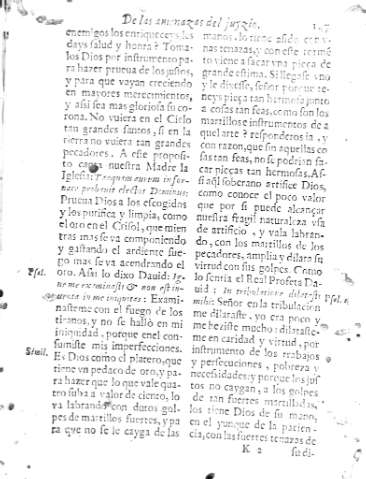 De las amenazas del juyzio.
enemigos los enriquece, y les
days salud y honra? Toma-
los Dios por instrumento pa-
ra hazer prueua de los justos,
y para que vayan creciendo
en mayores merecimientos,
y assi sea mas gloriosa su co-
rona. No vuiera en el Cielo
tan grandes santos, si en la
tierra no vuiera tan grandes
pecadores. A este proposi-
to canta nuestra Madre la
Iglesia: Tanquam aurum in for-
nace probauit electos Dominus:
Prueua Dios a los escogidos
y los purifica y limpia, como
el oro en el Crisol, que mien
tras mas se va componiendo
y gastando el ardiente fue-
go mas se va acendrando el
Psal. oro. Assi lo dixo Dauid: Ig-
ne me examinasti & non est in-
uenta in me iniquitas: Exami-
nasteme con el fuego de los
tiranos, y no se halló en mi
iniquidad, porque en el con-
sumiste mis imperfecciones.
Simil. Es Dios como el platero, que
tiene vn pedaco de oro, y pa-
ra hazer que lo que vale qua-
tro suba a valor de ciento, lo
va labrando con duros gol-
pes de martillos fuertes, y pa-
ra que no se le cayga de las
manos, lo tiene asido con v-
nas tenazas, y con este reme-
dio viene a sacar vna pieça de
grande estima. Si llegasse vno
y le dixesse, señor porque te-
neys pieça tan hermosa junto
a cosas tan feas, como son los
martillos e instrumentos de a
quel arte? responderos ia, y
con razon, que sin aquellas co
sas tan feas, no se podrian sa-
car pieças tan hermosas. As-
si aquel soberano artifice Dios,
como conoce el poco valor
que por si puede alcançar
nuestra fragil naturaleza vsa
de artificio, y vala labran-
do, con los martillos de los
pecadores, amplia y dilata su
virtud con sus golpes. Como
lo sentia el Real Profeta Da-
uid: In tribulatione dilatasti Psal.
mihi: Señor en la tribulacion
me dilataste, yo era poco y
me heziste mucho: dilataste-
me en caridad y virtud, por
instrumento de los trabajos
y persecuciones, pobreza y
necessidades: y porque los jus
tos no caygan, a los golpes
de tan fuertes martilladas,
los tiene Dios de su mano,
en el yunque de la pacien-
cia, con las fuertes tenazas de
K 2 su di-